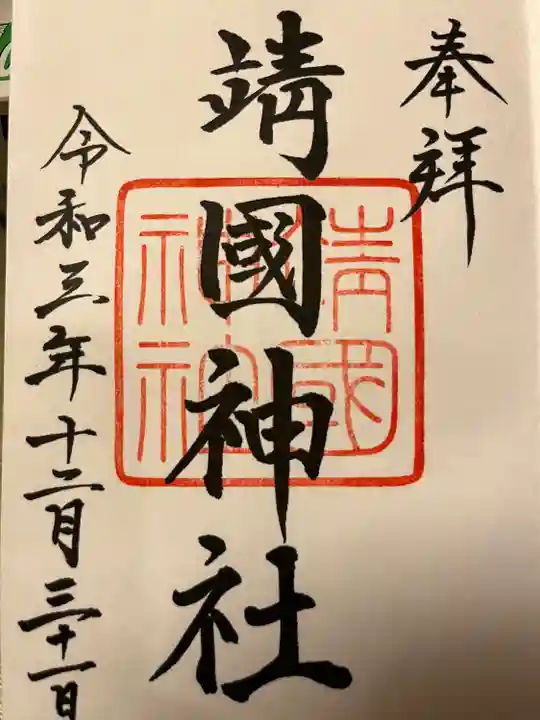 奉拝
靖國神社
靖国神社
令和三年十二月三十一日